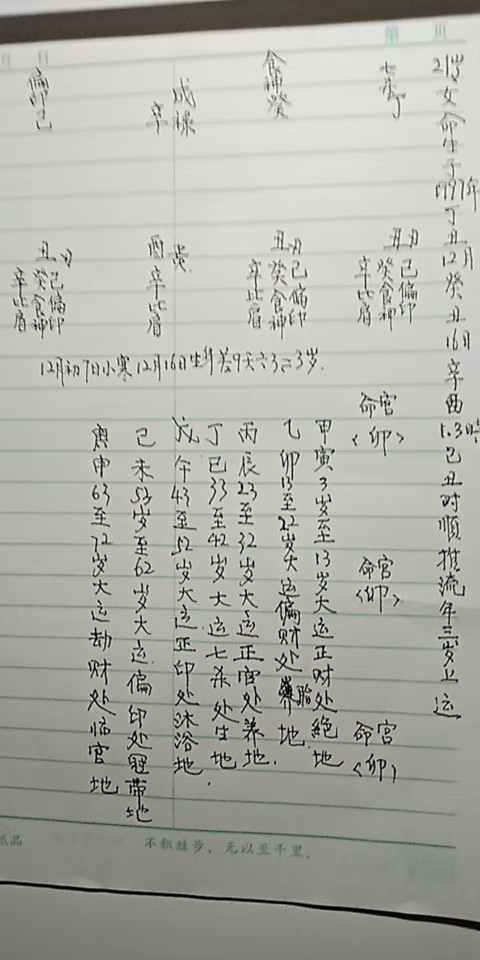 第 页
月 日
21岁女命生于1997年丁丑12月癸丑16日辛酉1.3時己丑时順推流年三岁上运
七杀丁
食神癸
辛
偏印己
丑
己偏印
癸食神
辛比肩
丑
己偏印
癸食神
辛比肩
酉
辛比肩
丑
己偏印
癸食神
辛比肩
12月初7日小寒12月16日生
命宫
<卯>
命宫
<卯>
命宫
<卯>
甲寅3岁至13岁大运正财处绝地
乙卯13至22岁大运偏财处胎地.
丙辰23至32岁大运正官处养地.
丁巳33至42岁大运七杀处生地.
戊午43至52岁大运正印处沐浴地
己未53岁至62岁大运偏印处冠带地
庚申63至72岁大运劫财处临官地
纸品
不积跬步，无以至千里。